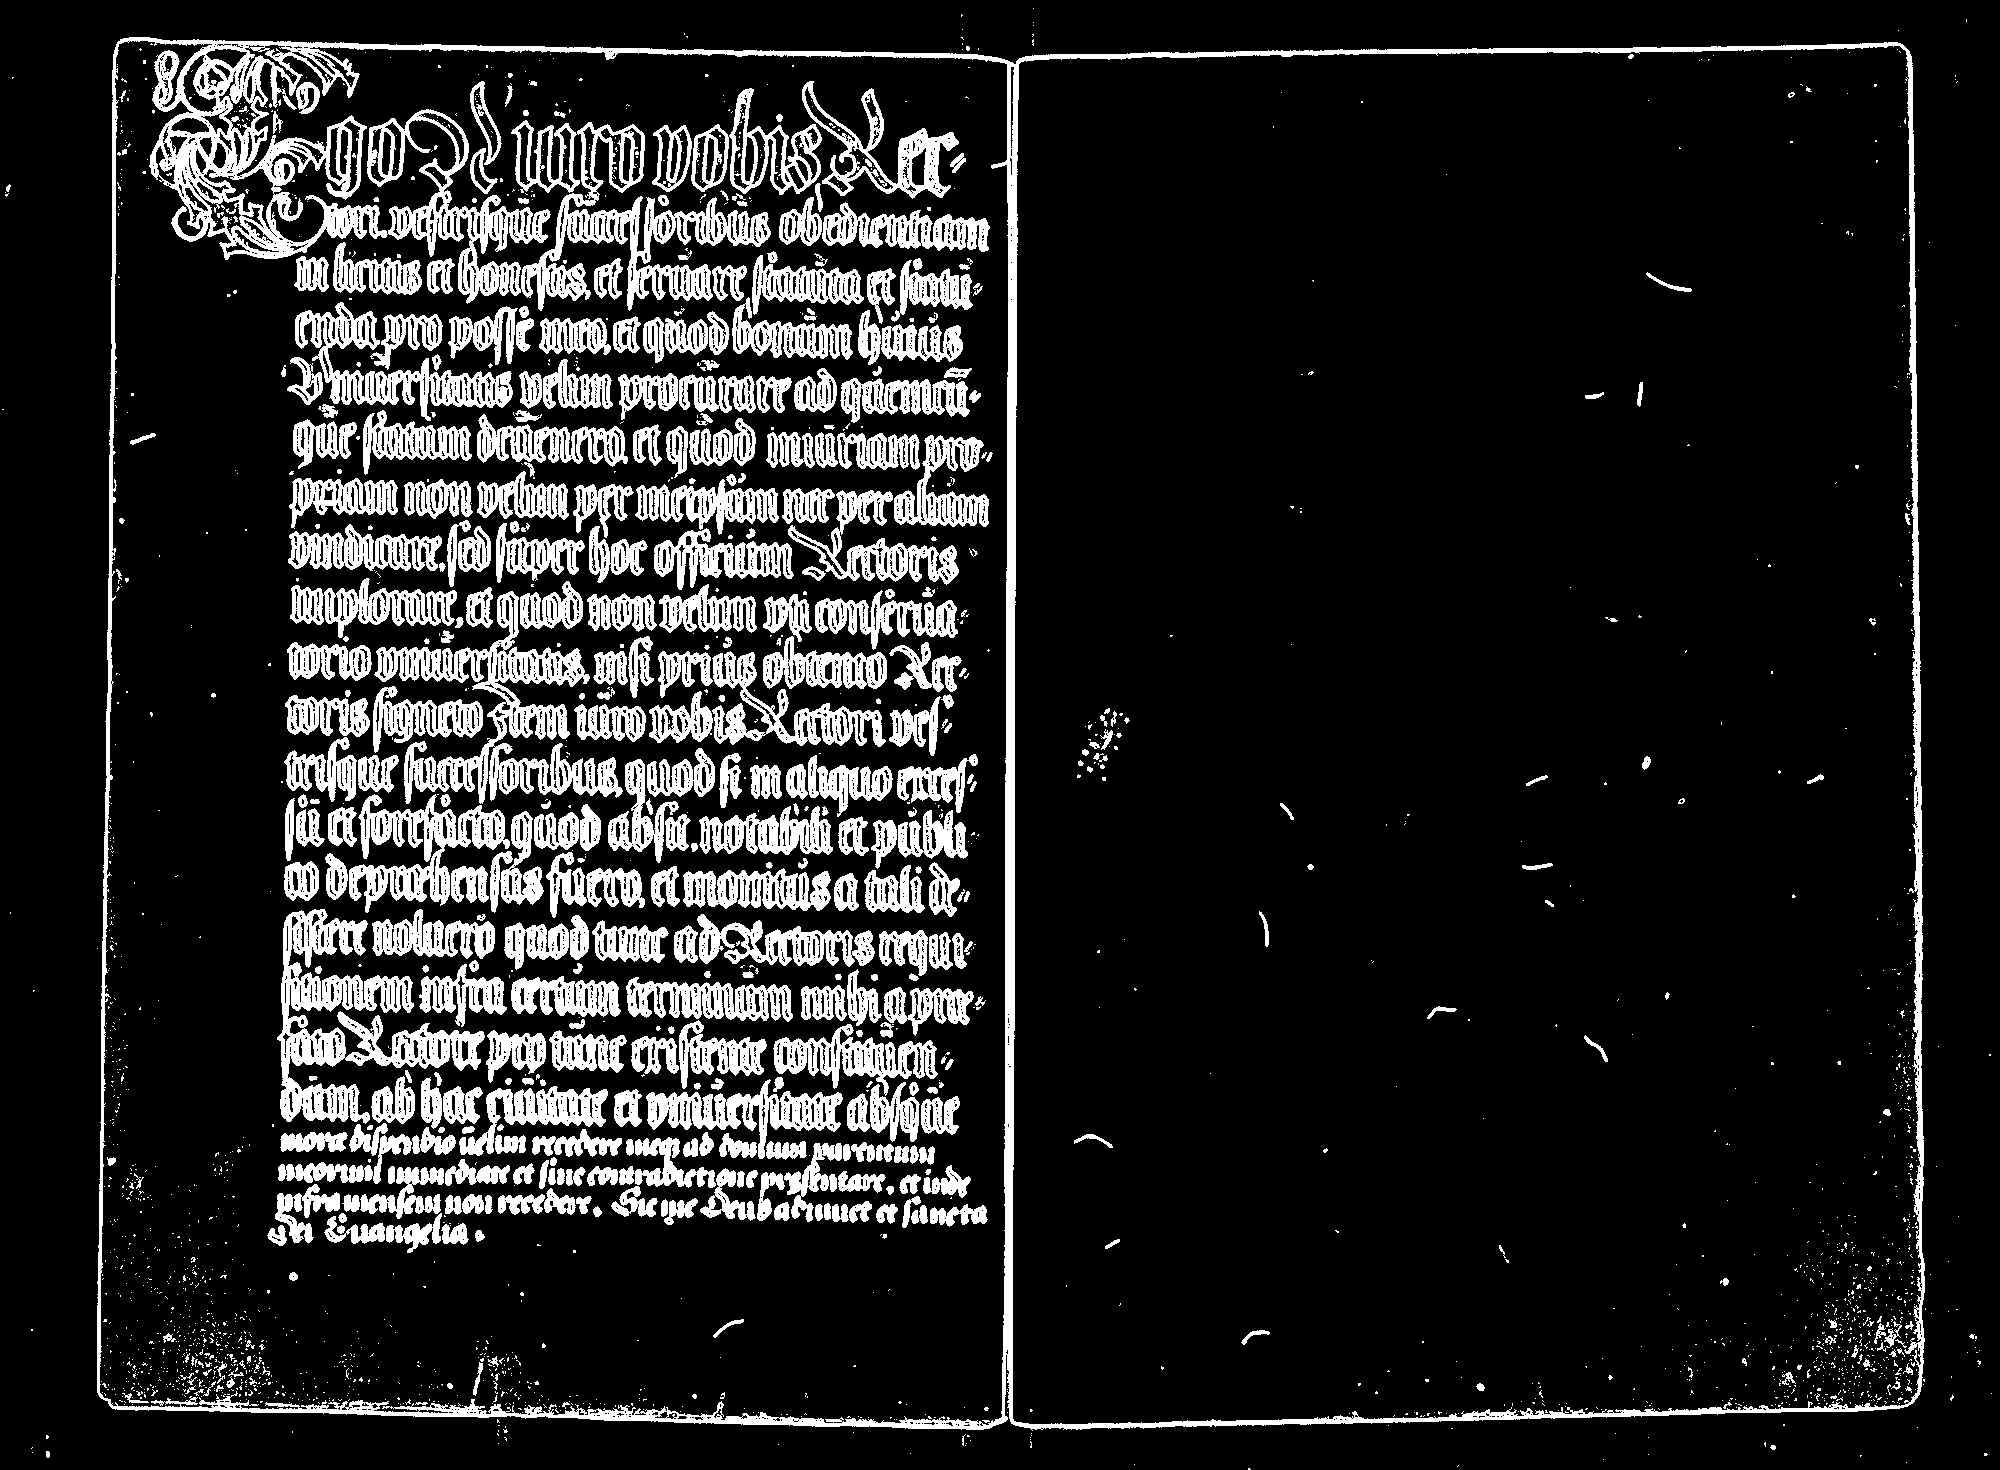 8
Ego N iuro vobis Rec-
tori. vestrisque successoribus obedientiam
in licitis et honestis, et servare statuta et statu-
enda pro posse meo, et quod bonum huius
Universitatis velim procurare ad quemcū-
que statum devenero, et quod iniuriam pro-
priam non velim per meipsum nec per alium
vindicare, sed super hoc officium Rectoris
implorare, et quod non velim uti conserva-
torio universitatis, nisi prius obtento Rec-
toris signeto Item iuro vobis Rectori ves-
trisque successoribus, quod si in aliquo exces-
sū et forefacto, quod absit, notabili et publi
co deprehensus fuero, et monitus a tali de-
sistere noluero quod tunc ad Rectoris requi-
sitionem infra certum terminum mihi a prae-
fato Rectore pro tunc existente constituen-
dum, ab hac civitate et universitate absque
morae dispendio velim recedere meque ad domum parentum
meorum immediate et sine contradictione praesentare, et inde
infra mensem non recedere. Sic me Deus adiuvet et sancta
Dei Evangelia.